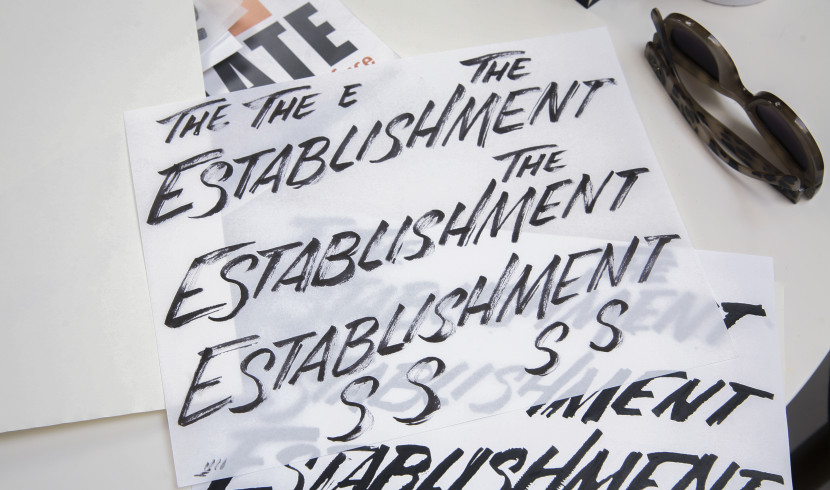 ATE
THE
THE THE E
ESTABLISHMENT
THE
ESTABLISHMENT
ESTABLISHMENT
S S
S S
MENT
ESTABLISHMENT